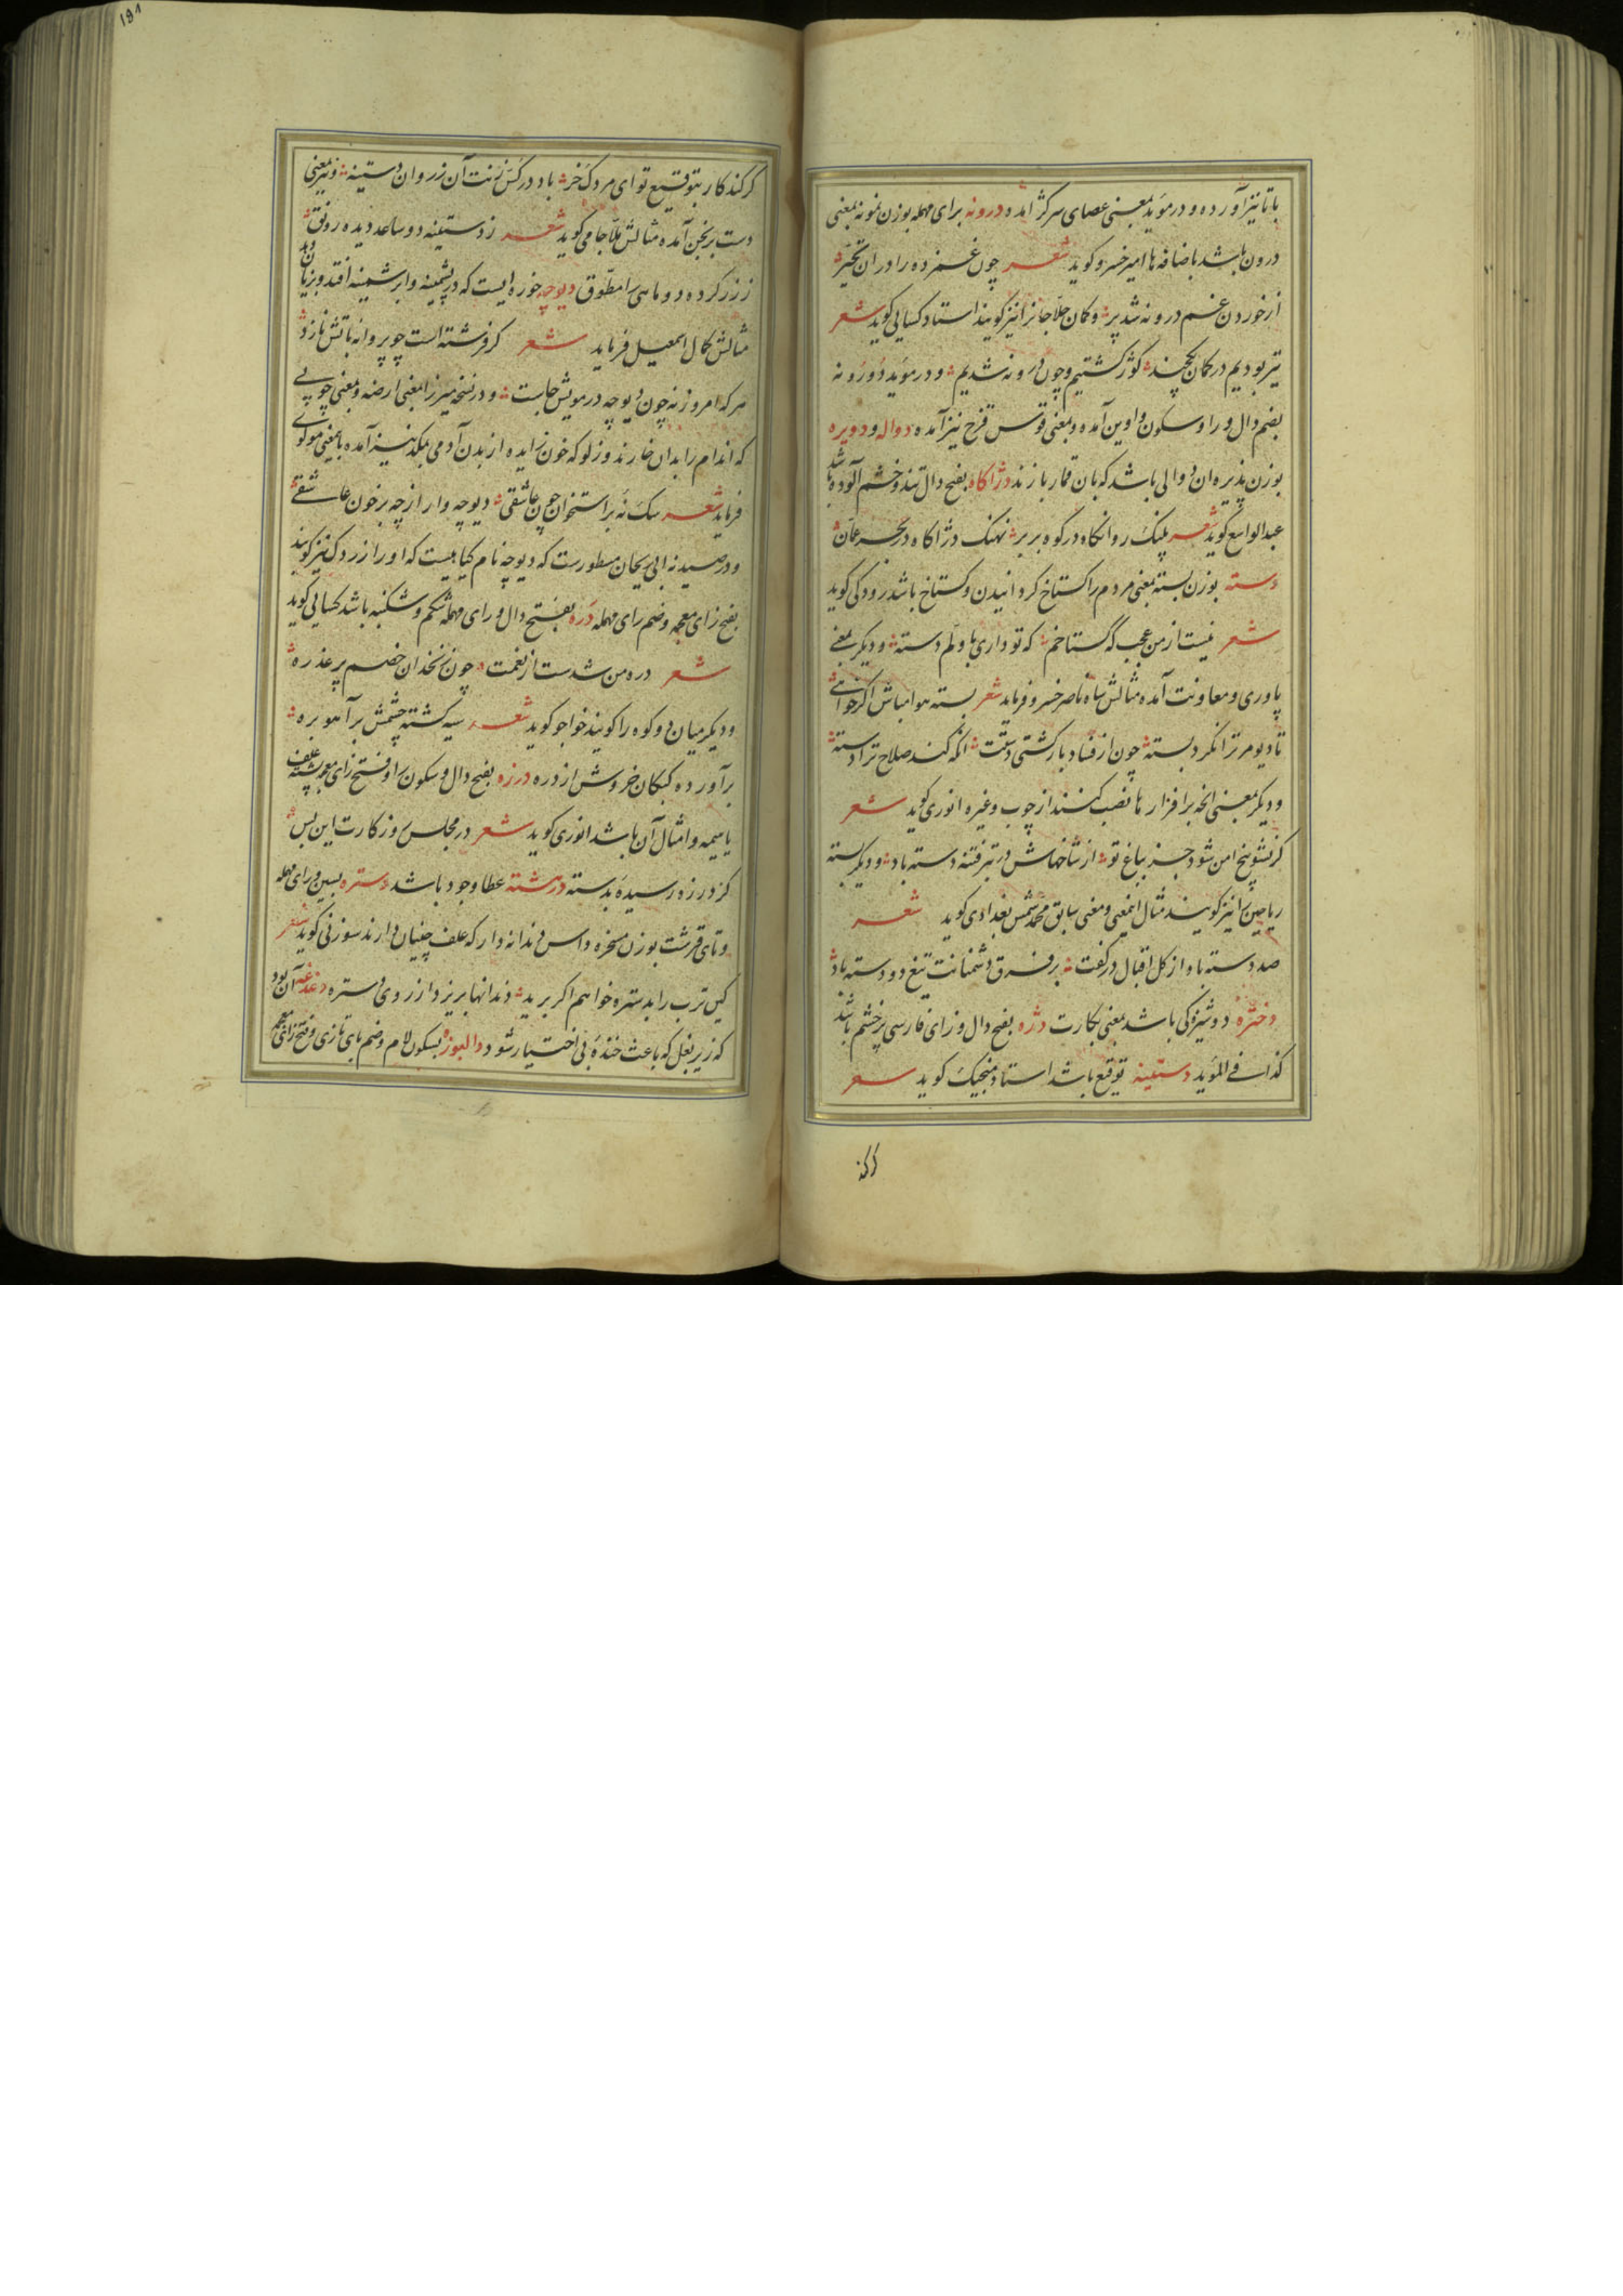 باتا نیز آورده و در مؤید بمعنی عصای سرکژ آمده درونه برای مهمله بوزن نمونه بمعنی
درون باشد باضافه ها امیر خسرو کوید شعر چون غمزده را در ان تحیّر
از خوردن غم درونه شد پر و کمان حلاجانرا نیز کویند استاد کسایی کوید شعر
تیر بودیم در کمان یکچند کوژ کشتیم و چون درونه شدیم و در مؤید دورونه
بضم دال و را و سکون واوین آمده و بمعنی قوس قزح نیز آمده دواله و دویره
بوزن پذیره ان دوالی باشد که بان قمار بازند دژاکاه بفتح دال تند و خشم آلوده باشد
عبدالواسع کوید شعر پلنک روانکاه در کوه بربر نهنک دژاکاه در بحر عمان
دسته بوزن بسته بمعنی مردم را کستاخ کردانیدن و کستاخ باشد رودکی کوید
شعر نیست از من عجب که گستاخم که تو داری باولم دسته و دیکر بمعنی
یاوری و معاونت آمده مثالش شاه ناصر خسرو فرماید شعر بسته هوا مباش اکر خواهی
تا دیو مر ترا نکرد بسته چون اوفتاد بار کشتی دستت انکه کند صلاح ترا دسته
و دیکر بمعنی انچه بر افزار ها نصب کنند از چوب و غیره انوری کوید شعر
کر نشو بیخ امن شود جز بباغ تو از شاخهاش در تبر فتنه دسته باد و دیکر بسته
ریاحین را نیز کویند مثال اینمعنی و معنی سابق محمد شمس بغدادی کوید شعر
صد دسته باد از کل اقبال در کفت بر فرق دشمنانت تیغ دو دسته باد
دخترۀ دوشیزکی باشد بمعنی بکارت دژه بفتح دال و زای فارسی پر خشم باشد
کذا فی المؤید دستینه توقیع باشد استاد منجیک کوید شعر
کر کند
کر کند کار بتوقیع تو ای مردک خر باد در کس زنت آن زر و ان دستینه و نیز بمعنی
دست برنجن آمده مثالش ملا جامی کوید شعر ز دستینه دو ساعد دیده رونق
ز زر کرده دو ماهی را مطوّق دیوچه خوره ایست که در پشمینه و ابریشمینه افتد و بزیان برد
مثالش کمال اسمعیل فرماید شعر کر فرشته است چو پروانه باتش نازد
هر که امروز نه چون دیوچه در مویش جاست و در نسخه میرزا بمعنی ارضه و بمعنی چوبی
که اندام را بدان خارند و زلو که خون زایده از بدن آدمی بمکد نیز آمده باینمعنی مولوی
فرماید شعر سک نۀ بر استخوان چون عاشقی دیوچه وار از چه بر خون عاشقی
و در صیدنه ابی ریحان مسطورست که دیوچه نام کیاهیست که او را زردک نیز کویند
بفتح زای معجمه و ضم رای مهمله دره بفتح دال و رای مهمله شکم و شکنبه باشد کسایی کوید
شعر دره من شدست از نعمت چون زنخدان خصم پر عذره
و دیکر میان دو کوه را کویند خواجو کوید شعر سیه کشته چشمش بر آهو بره
برآورده کبکان خروش از دره درزه بفتح دال و سکون را و فتح زای معجمه پشته علف
یا هیمه و امثال آن باشد انوری کوید شعر در مجلس روزکارت این بس
کز درزه رسیدۀ بدسته درهشته عطا وجود باشد دستره بسین و رای مهمله
و تای قرشت بوزن مسخره داس دندانه دار که علف چینیان دارند سوزنی کوید شعر
کین ترب را بدستره خواهم اکر برید دندانها بریزد از روی دستره دغدغه آن بود
که زیر بغل که باعث خندۀ بی اختیار شود دالبوزه بسکون لام و ضم بای تازی و فتح زای معجمه